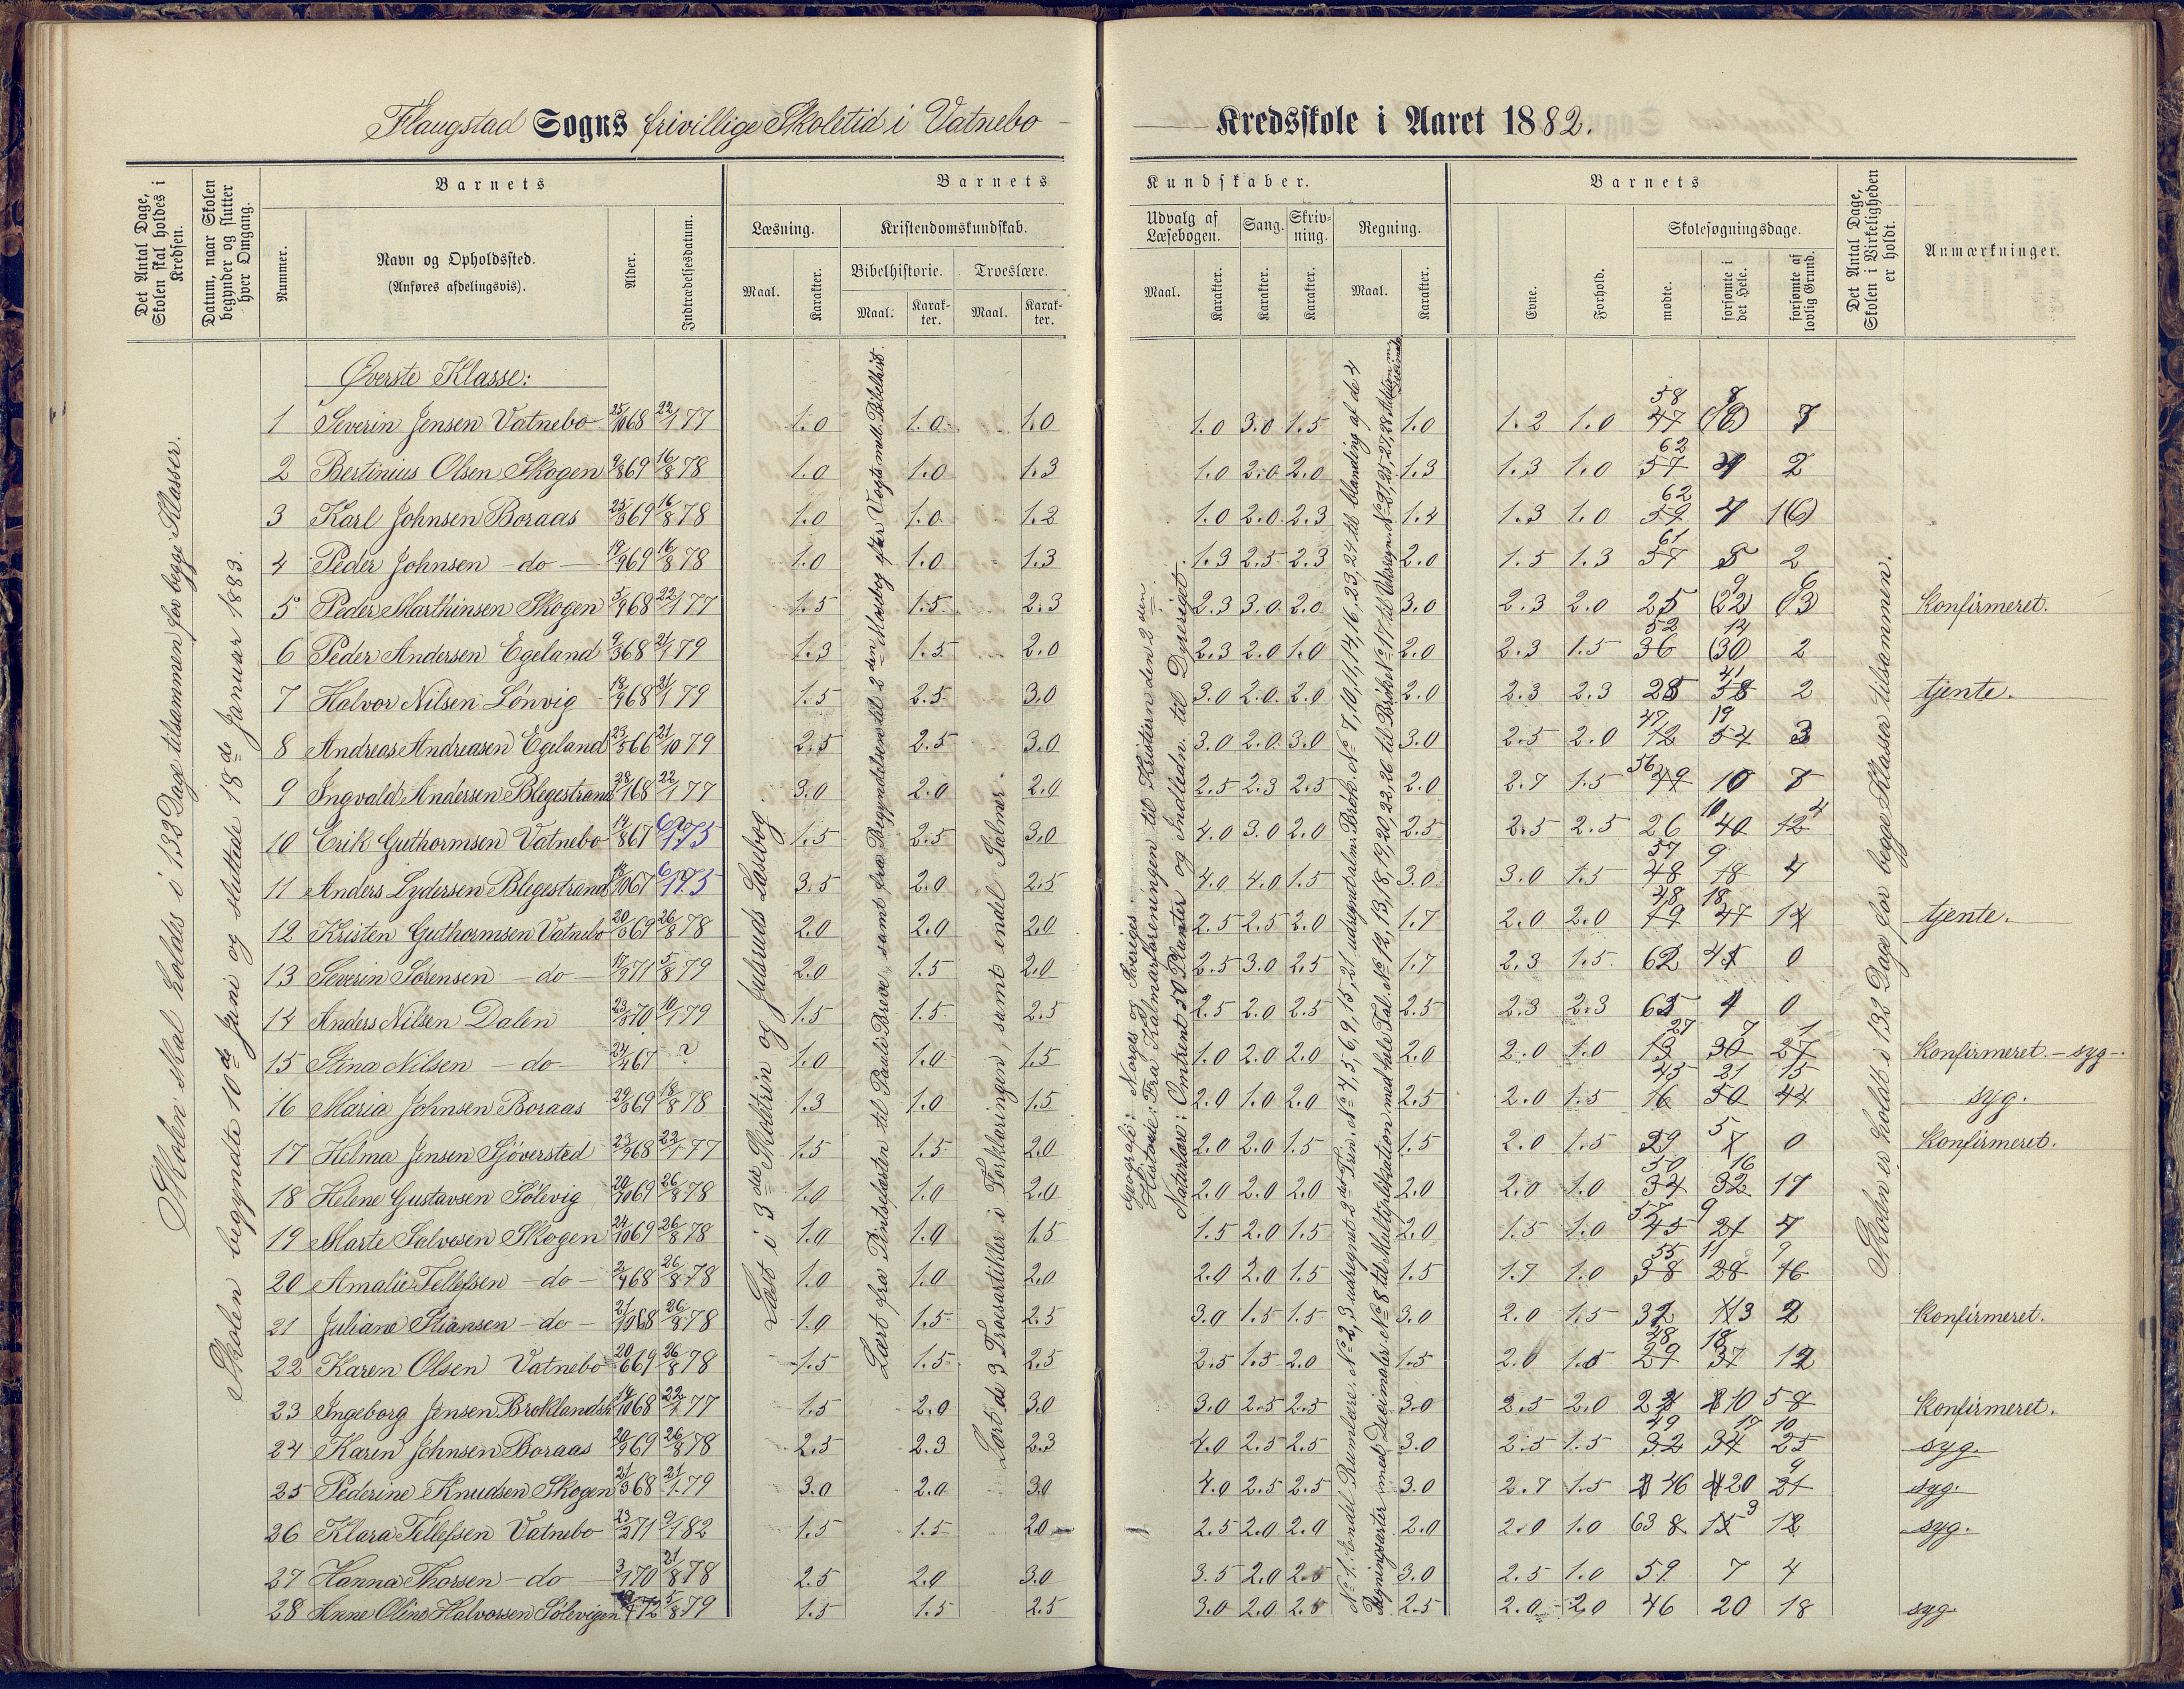 Flaugstad Sogns frivillige Skoletid i Vatnebo — Kredsskole i Aaret 1882.
Det Antal Dage, Skolen skal holdes i Kredsen.
Datum, naar Skolen begynder og slutter hver Omgang.
Barnets
Nummer.
Navn og Opholdssted.
(Anføres afdelingsvis).
Alder.
Indtrædelsesdatum.
Barnets Kundskaber.
Læsning.
Maal.
Karakter.
Kristendomskundskab.
Bibelhistorie.
Maal.
Karakter.
Troeslære.
Maal.
Karakter.
Udvalg af Læsebogen.
Maal.
Karakter.
Sang.
Karakter.
Skrivning.
Karakter.
Regning.
Maal.
Karakter.
Barnets
Evne.
Forhold.
Skolesøgningsdage.
mødte.
forsømte i det Hele.
forsømte af lovlig Grund.
Det Antal Dage, Skolen i Virkeligheden er holdt.
Anmærkninger.
Skolen skal holdes i 132 Dage tilsammen for begge Klasser.
Skolen begyndte 10de Juni og sluttede 18de Januar 1883.
Læst i 3die Skoletrin og Julsruds Læsebog.
Lært fra Pintsefesten til Pauli Breve, samt fra Begyndelsen til 2den Mosebog efter Vogts mell. Bibelhist.
Lært de 3 Troesartikler i Forklaringen, samt endel Salmer.
Geografi: Norges og Sveriges.
Historie: Fra Kalmarforeningen til Kristiern den 2den
Naturlære: Omtrent 50 Planter og Indledn. til Dyreriget.
Skolen er holdt i 132 Dage for begge Klasser tilsammen.
Øverste Klasse:
1 Severin Jensen Vatnebo 25/10 68 22/1 77 1.0 1.0 1.0 1.0 3.0 1.5 1.0 1.2 1.0 58
2 Bertinius Olsen Skogen 9/8 69 16/8 78 1.0 1.0 1.3 1.0 2.0 2.0 1.3 1.3 1.0 62 2
3 Karl Johnsen Boraas 25/3 69 16/8 78 1.0 1.0 1.2 1.0 2.0 2.3 1.4 1.3 1.0 62
4 Peder Johnsen – do – 19/9 69 16/8 78 1.0 1.0 1.3 1.3 2.5 2.3 2.0 1.5 1.3 61 2
5 Peder Marthinsen Skogen 5/9 68 22/1 77 1.5 1.5 2.3 2.3 3.0 2.0 3.0 2.3 2.0 25 Konfirmeret.
6 Peder Andersen Egeland 9/3 68 21/1 79 1.3 1.5 2.0 2.3 2.0 1.0 2.0 2.3 1.5 52 36 14 (30) 2
7 Halvor Nilsen Lønvig 18/9 68 21/1 79 1.5 2.5 3.0 3.0 2.0 2.0 2.0 2.3 2.3 41 2 tjente.
8 Andreas Andreasen Egeland 23/5 66 21/10 79 2.5 2.5 3.0 3.0 2.0 3.0 3.0 2.5 2.0 47 19 3
9 Ingvald Andersen Blegestrand 28/1 68 22/1 77 3.0 2.0 2.0 2.5 2.3 2.5 2.0 2.7 1.5 56 49 10
10 Erik Guthormsen Vatnebo 14/8 67 1 75 1.5 2.5 3.0 4.0 3.0 2.0 2.5 2.5 2.5 26 40
11 Anders Lydersen Blegestrand 67 1 75 3.5 2.0 2.5 4.0 4.0 1.5 3.0 3.0 1.5 57 48 9 18 4
12 Kristen Guthormsen Vatnebo 20/3 69 26/8 78 2.0 2.0 2.0 2.5 2.5 2.0 1.7 2.0 2.0 48 19 18 47 tjente.
13 Severin Sørensen – do – 71 5/8 79 2.0 1.5 2.0 2.5 3.0 2.5 1.7 2.3 1.5 62 0
14 Anders Nilsen Dalen 23/3 70 10/1 79 1.5 1.5 2.5 2.5 2.0 2.5 2.5 2.3 2.3 4 0
15 Stina Nilsen – do – 24/2 67 ? 1.0 1.0 1.5 1.0 2.0 2.0 2.0 2.0 1.0 27 13 7 30 1 27 Konfirmeret. – syg –.
16 Maria Johnsen Boraas 29/3 69 18/8 78 1.3 1.0 1.5 2.0 1.0 2.0 2.5 2.0 1.5 45 16 21 50 15 44 syg.
17 Hilma Jensen Sjøversted 23/9 68 22/1 77 1.5 1.5 2.0 2.0 2.0 1.5 1.5 2.0 1.5 29 5 0 Konfirmeret.
18 Helene Gustavsen Sølevig 20/10 69 26/8 78 1.0 1.0 2.0 2.0 2.0 2.0 2.0 2.0 1.0 50 34 16 32 17
19 Marte Salvesen Skogen 24/10 69 26/8 78 1.0 1.0 1.5 1.5 2.0 1.5 2.0 1.5 1.0 57 45 9 21
20 Amalie Tellefsen – do – 2/4 68 26/8 78 1.0 1.0 2.0 2.0 2.0 1.5 1.5 1.7 1.0 55 38 11 28 9 16
21 Juliane Stiansen – do – 21/10 68 26/8 78 1.0 1.5 2.5 3.0 1.5 1.5 3.0 2.0 1.5 32 13 2 Konfirmeret.
22 Karen Olsen Vatnebo 20/6 69 26/8 78 1.5 1.5 2.5 2.5 1.5 2.0 1.5 2.0 1.5 48 29 18 37 12
23 Ingeborg Jensen Broklandsh 14/10 68 22/1 77 1.5 2.0 3.0 3.0 2.5 2.5 3.0 2.5 2.0 10 5 Konfirmeret.
24 Karen Johnsen Boraas 20/9 69 26/8 78 2.5 2.3 2.3 4.0 2.5 2.5 3.0 2.5 1.5 49 32 17 34 10 25 syg.
25 Pederine Knudsen Skogen 21/3 68 21/1 79 3.0 2.0 3.0 4.0 2.5 2.5 3.0 2.7 1.5 46 20 9 21 syg.
26 Klara Tellefsen Vatnebo 23/2 71 9/1 82 1.5 1.5 2.0 2.5 2.0 2.0 2.0 2.0 1.0 63 3 12 syg.
27 Hanna Thorsen – do – 3/1 70 21/8 78 2.5 2.0 3.0 3.5 2.0 2.5 3.0 2.5 1.0 59 7 4
28 Anne Oline Halvorsen Sølevigen 72 5/8 79 1.5 1.5 2.5 3.0 2.0 2.5 2.5 2.0 2.0 46 20 18 syg